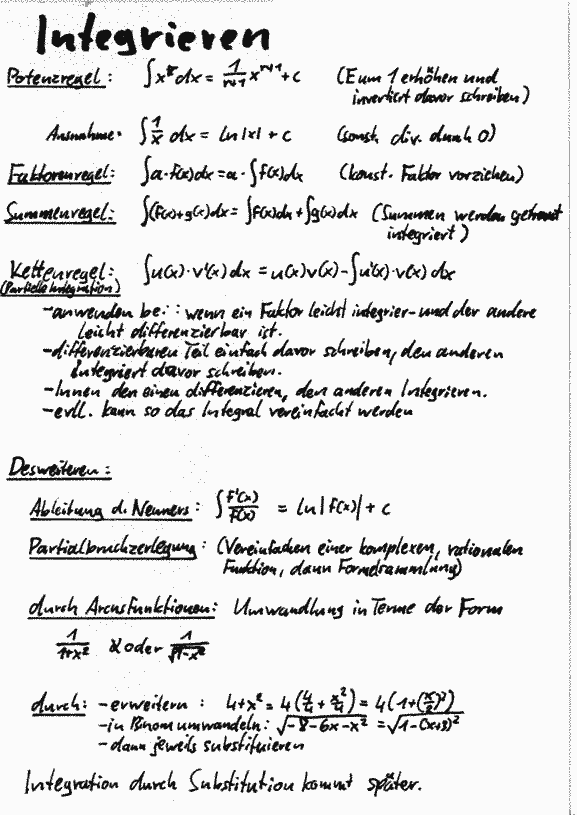 Integrieren
Potenzregel: ∫x^r dx = 1/(r+1) x^(r+1) + c (E um 1 erhöhen und
invertiert davor schreiben)
Ausnahme: ∫1/x dx = ln|x| + c (sonst div. durch 0)
Faktorenregel: ∫a·f(x)dx = a·∫f(x)dx (konst. Faktor vorziehen)
Summenregel: ∫(f(x)+g(x)dx = ∫f(x)dx + ∫g(x)dx (Summen werden getrennt
integriert)
Kettenregel: ∫u(x)·v'(x)dx = u(x)v(x) - ∫u'(x)·v(x)dx
(Partielle Integration)
-anwenden bei: wenn ein Faktor leicht integrier- und der andere
leicht differenzierbar ist.
-differenzierbaren Teil einfach davor schreiben, den anderen
integriert davor schreiben.
-Innen den einen differenzieren, den anderen Integrieren.
-evtl. kann so das Integral vereinfacht werden
Desweiteren:
Ableitung d. Nenners: ∫f'(x)/f(x) = ln|f(x)| + c
Partialbruchzerlegung: (Vereinfachen einer komplexen, rationalen
Funktion, dann Formelsammlung)
durch Arcusfunktionen: Umwandlung in Terme der Form
1/(1+x²) oder 1/√(1-x²)
durch: -erweitern: 4+x² = 4(4/4 + x²/4) = 4(1+(x/2)²)
-in Binom umwandeln: √(-8-6x-x²) = √(1-(x+3)²)
-dann jeweils substituieren
Integration durch Substitution kommt später.